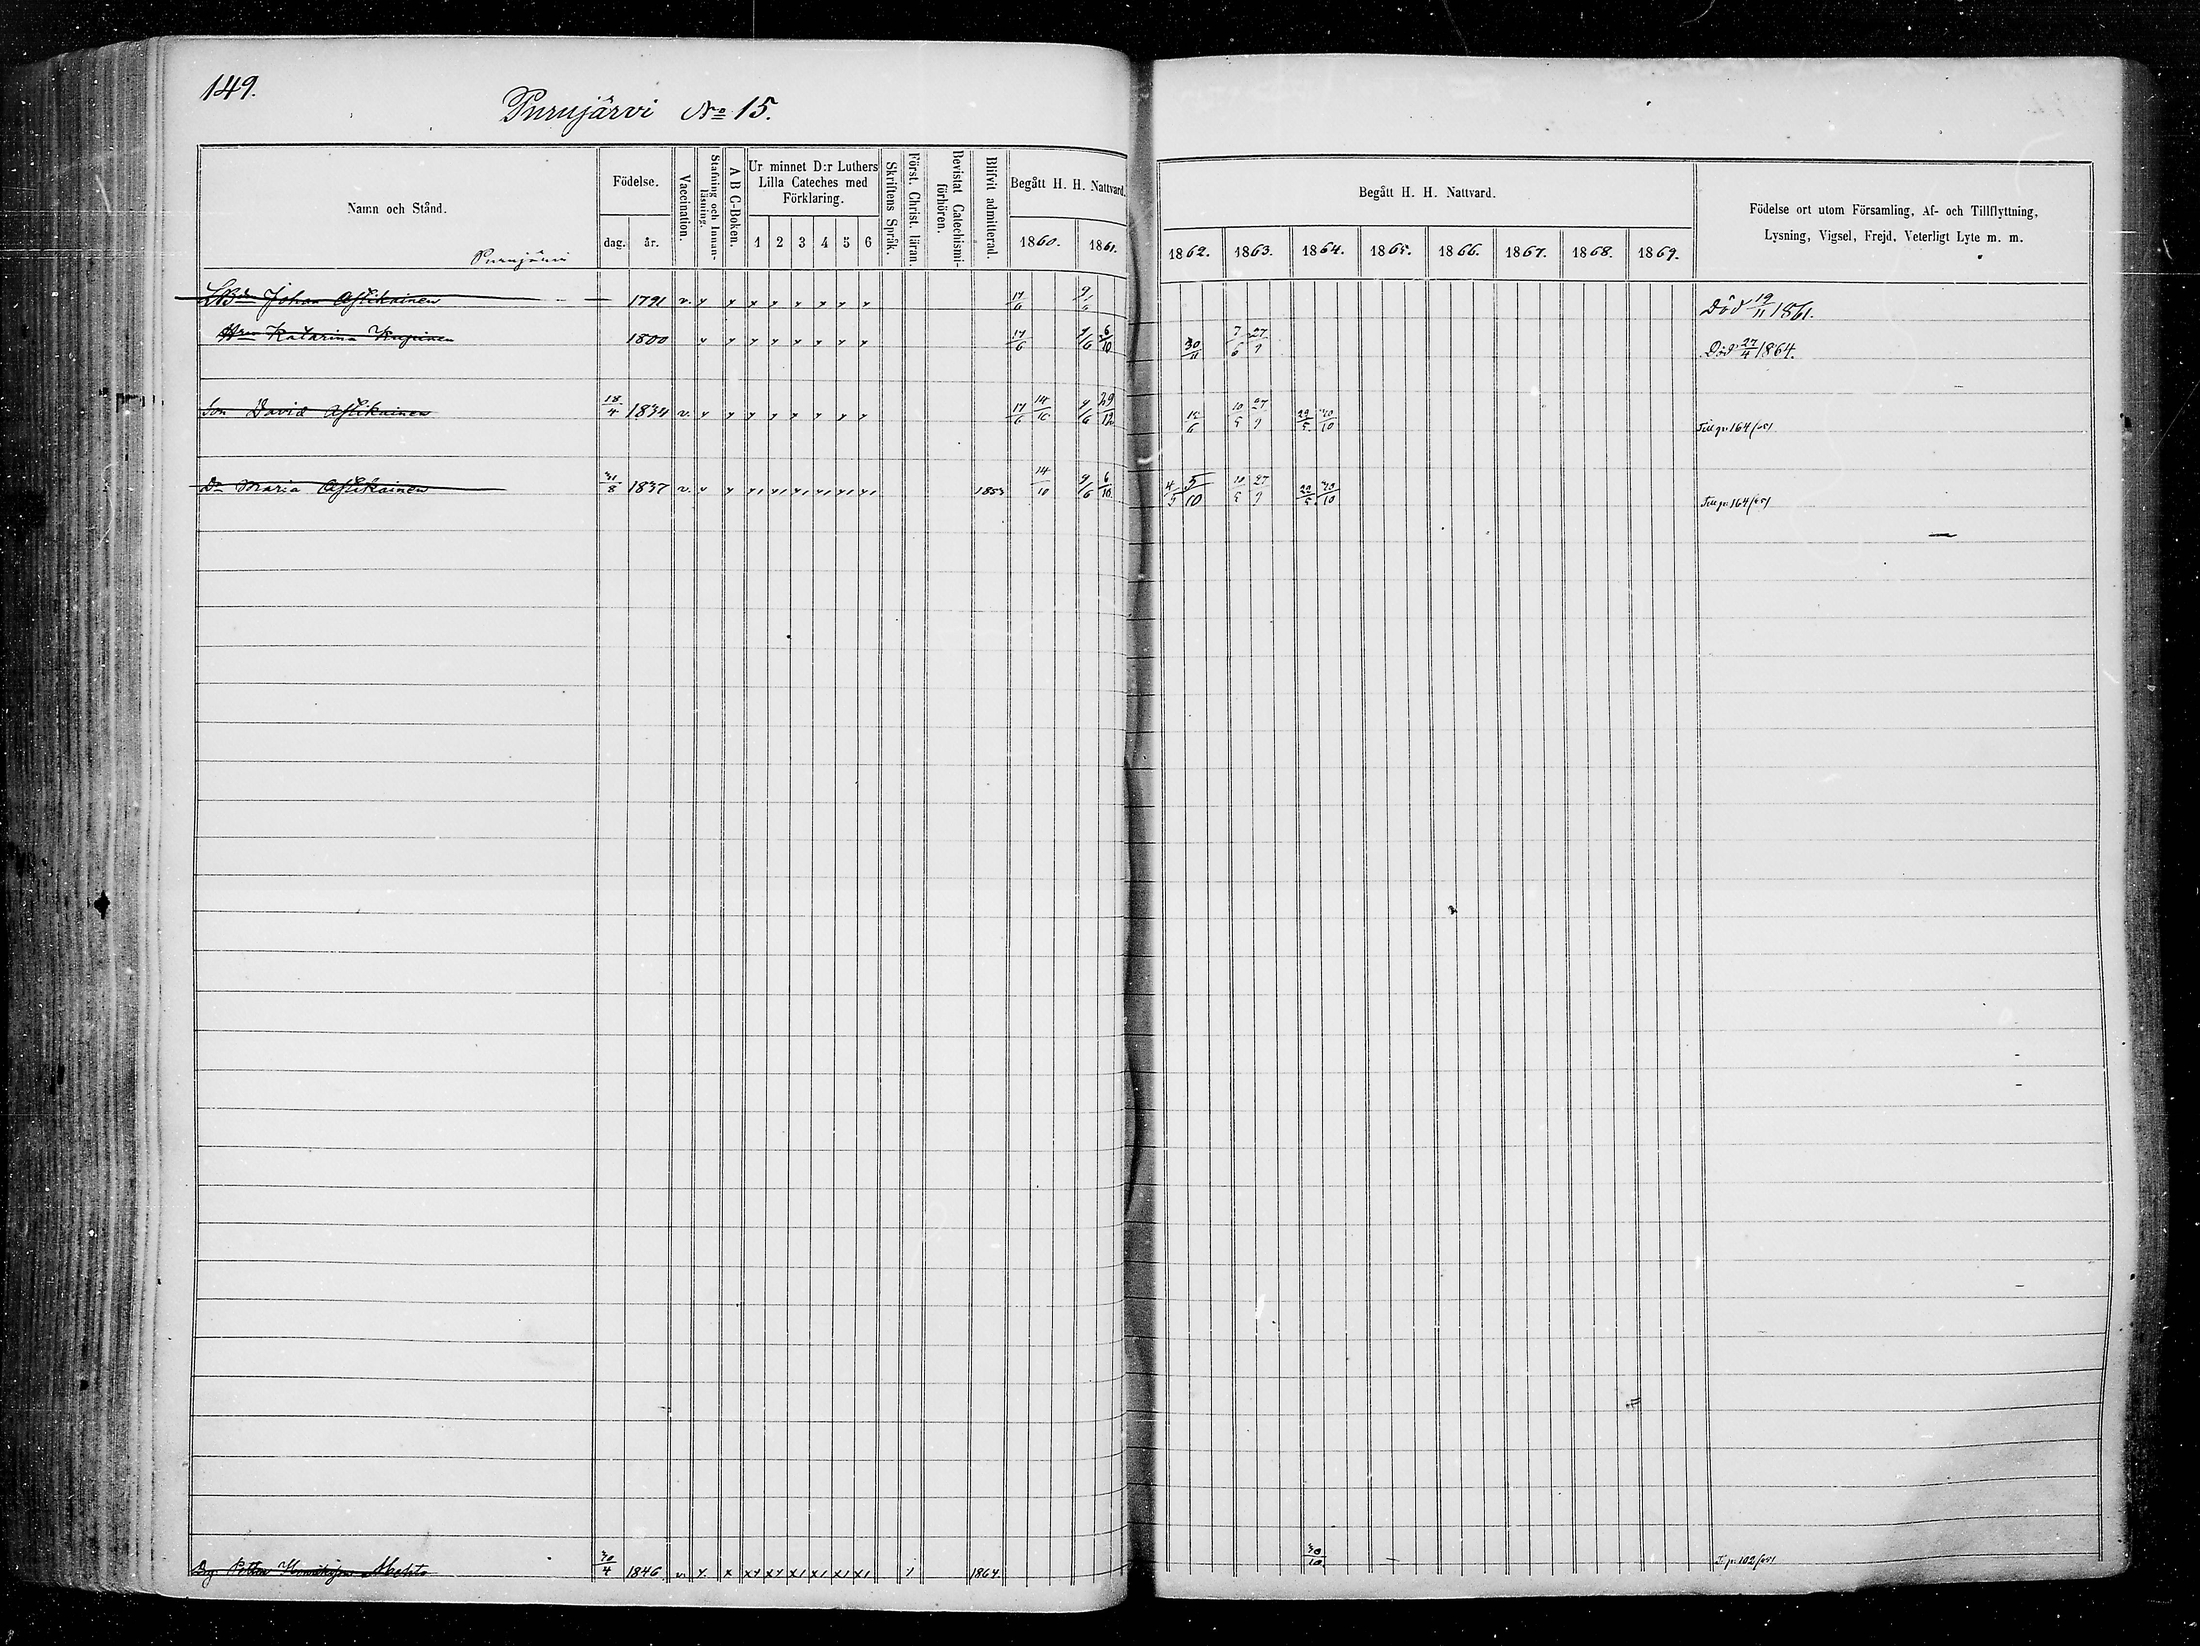 149.
Purujärvi No 15.
Namn och Stånd.
Födelse.
dag. år.
Vaccination.
Stafning och Innan-läsning.
A B C-Boken.
Ur minnet D:r Luthers Lilla Cateches med Förklaring.
1 2 3 4 5 6
Skriftens Språk.
Först. Christ. läran.
Bevistat Catechismi-förhören.
Blifvit admitterad.
Begått H. H. Nattvard.
1860. 1861.
Begått H. H. Nattvard.
1862. 1863. 1864. 1865. 1866. 1867. 1868. 1869.
Födelse ort utom Församling, Af- och Tillflyttning,
Lysning, Vigsel, Frejd, Veterligt Lyte m. m.
Purujärvi
Johan Astikainen 1791 v. 17/6 9/6 Död 19/11 1861.
Katarina 1800 17/6 9/6 6/10 30/11 7/6 27/9 Död 27/4 1864.
Son David Astikainen 18/4 1834 v. 17/6 14/10 9/6 29/12 15/6 10/5 27/9 22/5 30/10 Till p. 164/651
Dr Maria Astikainen 31/8 1837 v. 1853 14/10 9/6 6/10 4/5 5/10 10/5 27/9 22/5 30/10 Till p. 164/651
Petter 30/4 1846 v. 1864. 30/10 T. p. 102/651